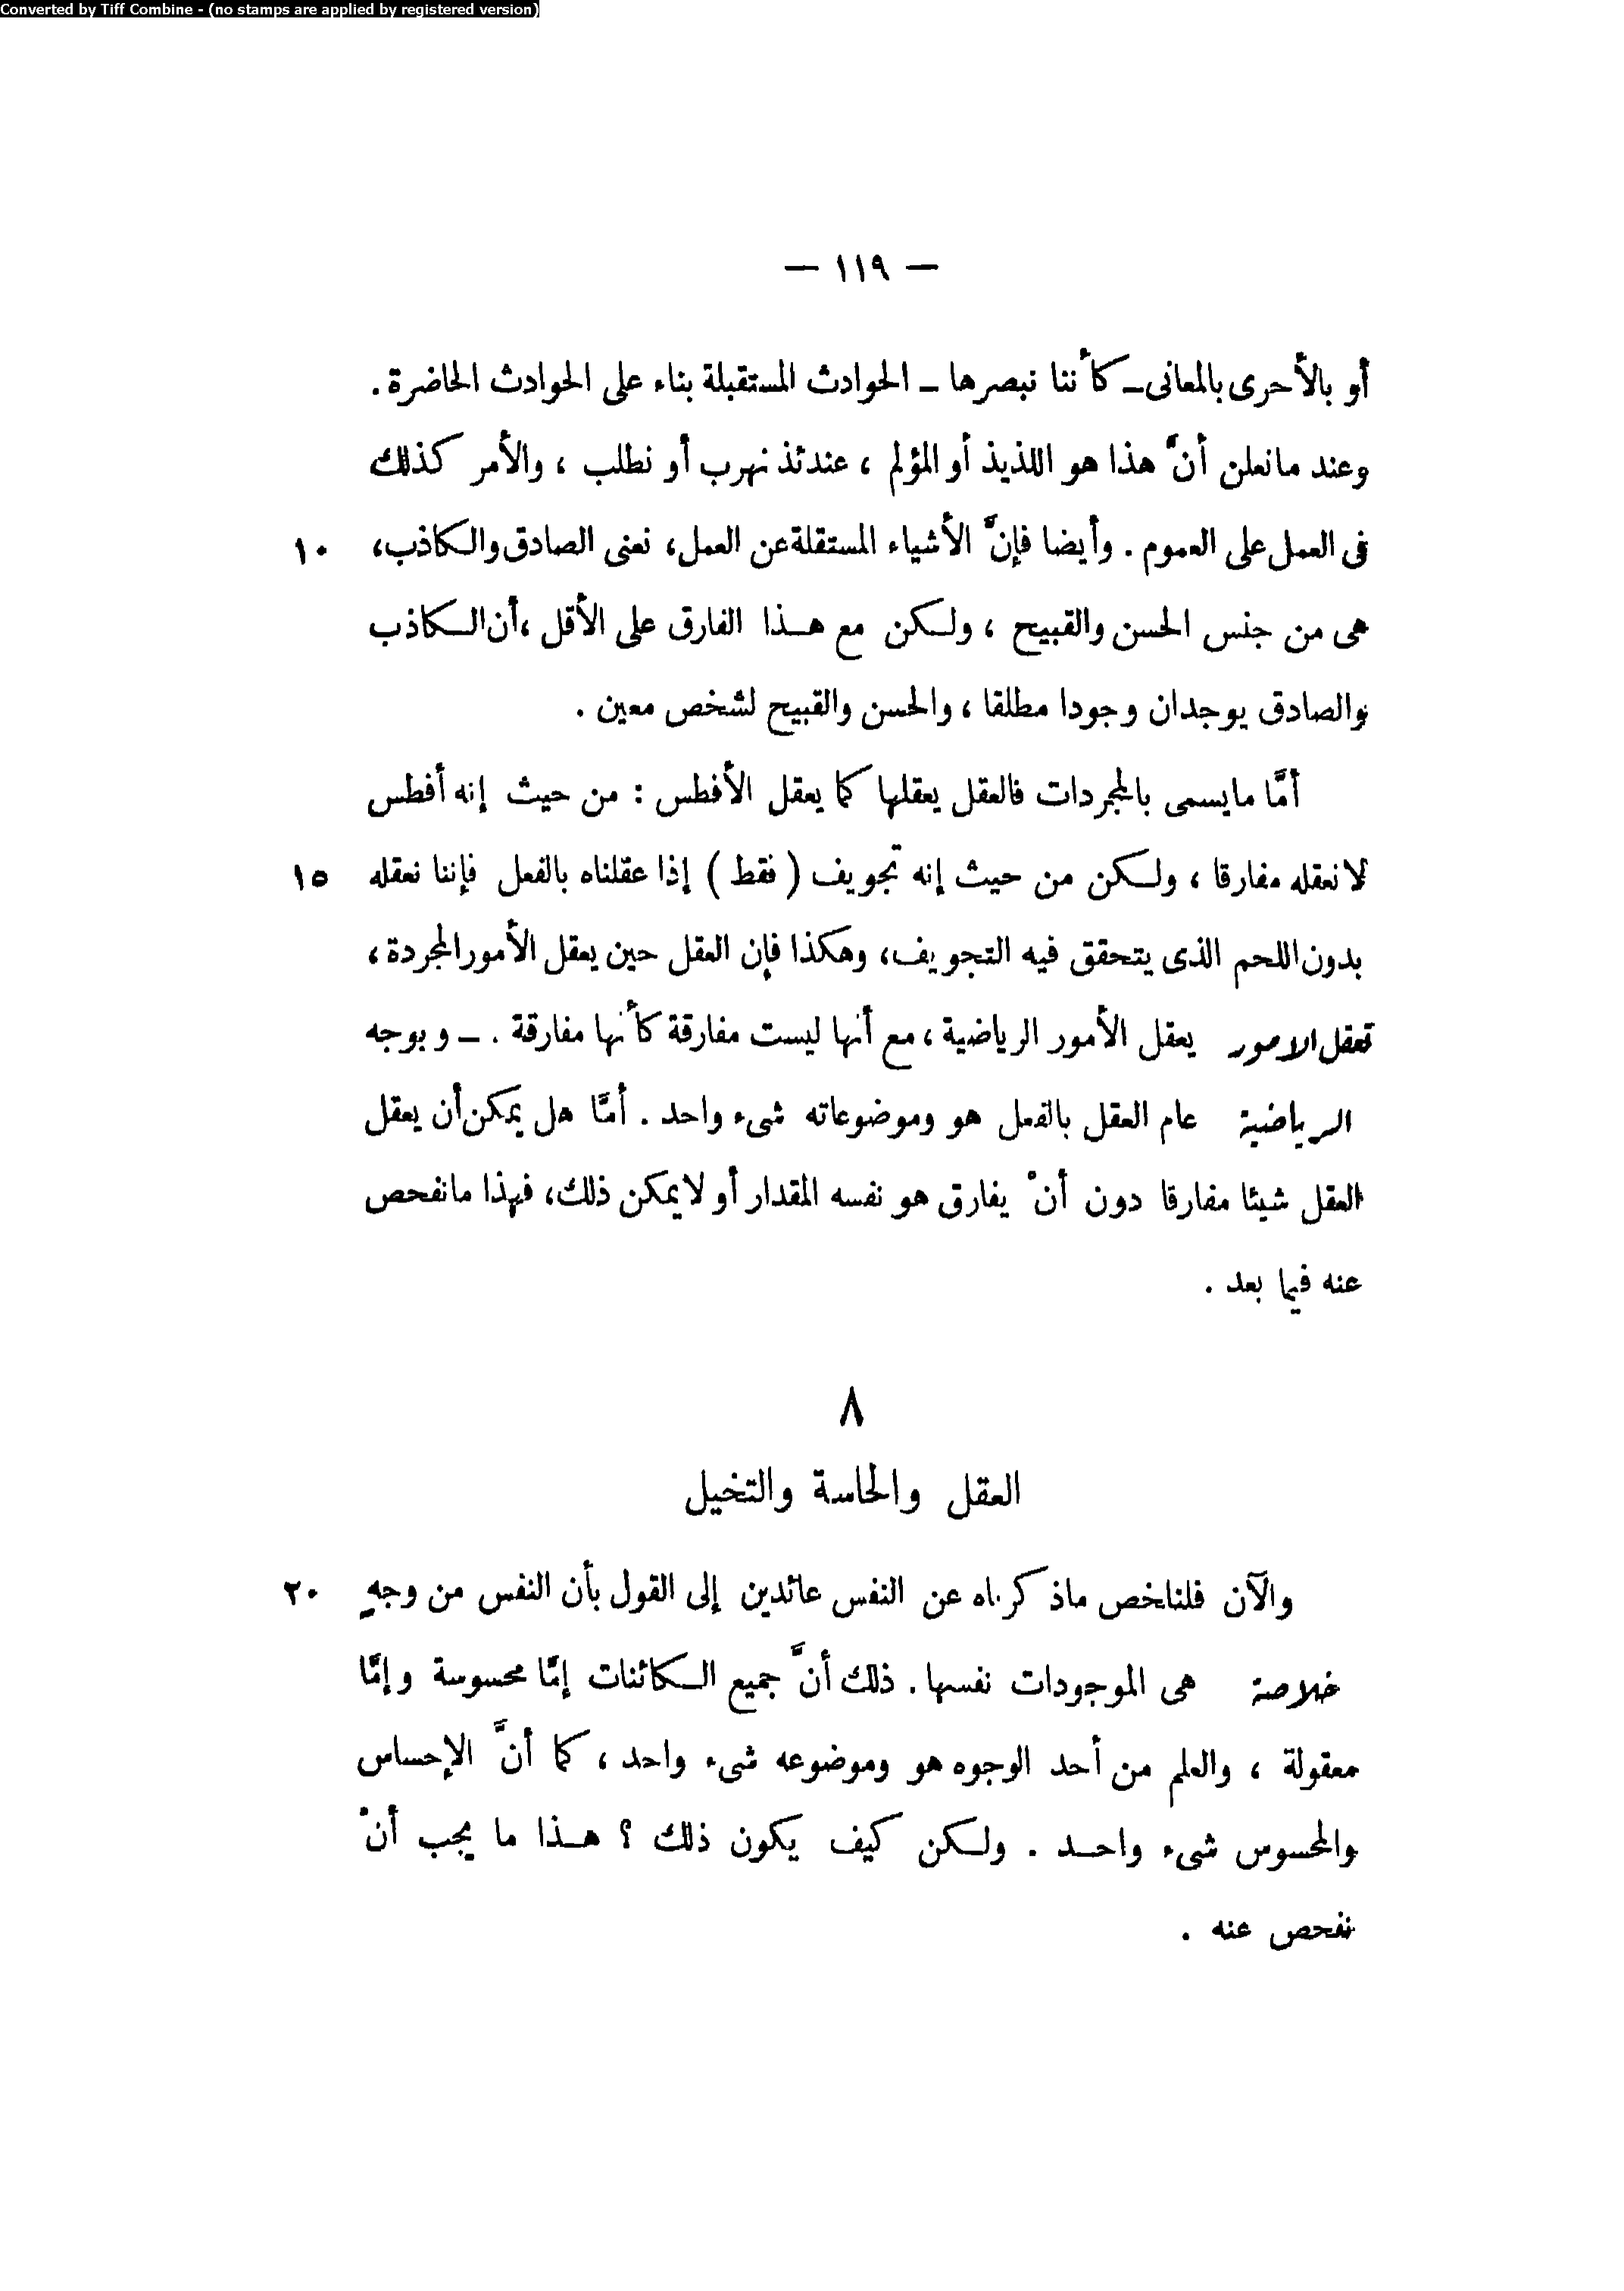 Converted by Tiff Combine - (no stamps are applied by registered version)
— ١١٩ —
أو بالأحرى بالمعانى ــ كأننا نبصرها ــ الحوادث المستقبلة بناء على الحوادث الحاضرة .
وعند مانعلن أنَّ هذا هو اللذيذ أو المؤلم ، عندئذ نهرب أو نطلب ، والأمر كذلك
فى العمل على العموم . وأيضا فإنَّ الأشياء المستقلة عن العمل ، نعنى الصادق والكاذب ، ١٠
هى من جنس الحسن والقبيح ، ولكن مع هذا الفارق على الأقل ، أن الكاذب
والصادق يوجدان وجودا مطلقا ، والحسن والقبيح لشخص معين .
أمَّا مايسمى بالمجردات فالعقل يعقلها كما يعقل الأفطس : من حيث إنه أفطس
لانعقله مفارقا ، ولكن من حيث إنه تجويف ( فقط ) إذا عقلناه بالفعل فإننا نعقله ١٥
بدون اللحم الذى يتحقق فيه التجويف ، وهكذا فإن العقل حين يعقل الأمور المجردة ،
تعقل الامور يعقل الأمور الرياضية ، مع أنها ليست مفارقة كأنها مفارقة . ــ وبوجه
الرياضية عام العقل بالفعل هو وموضوعاته شىء واحد . أمَّا هل يمكن أن يعقل
العقل شيئا مفارقا دون أنْ يفارق هو نفسه المقدار أو لايمكن ذلك ، فهذا مانفحص
عنه فيما بعد .
٨
العقل والحاسة والتخيل
والآن فلنلخص ماذكرناه عن النفس عائدين إلى القول بأن النفس من وجهٍ ٢٠
خلاصة هى الموجودات نفسها . ذلك أنَّ جميع الكائنات إمَّا محسوسة وإمَّا
معقولة ، والعلم من أحد الوجوه هو وموضوعه شىء واحد ، كما أنَّ الإحساس
والمحسوس شىء واحد . ولكن كيف يكون ذلك ؟ هذا ما يجب أنْ
نفحص عنه .